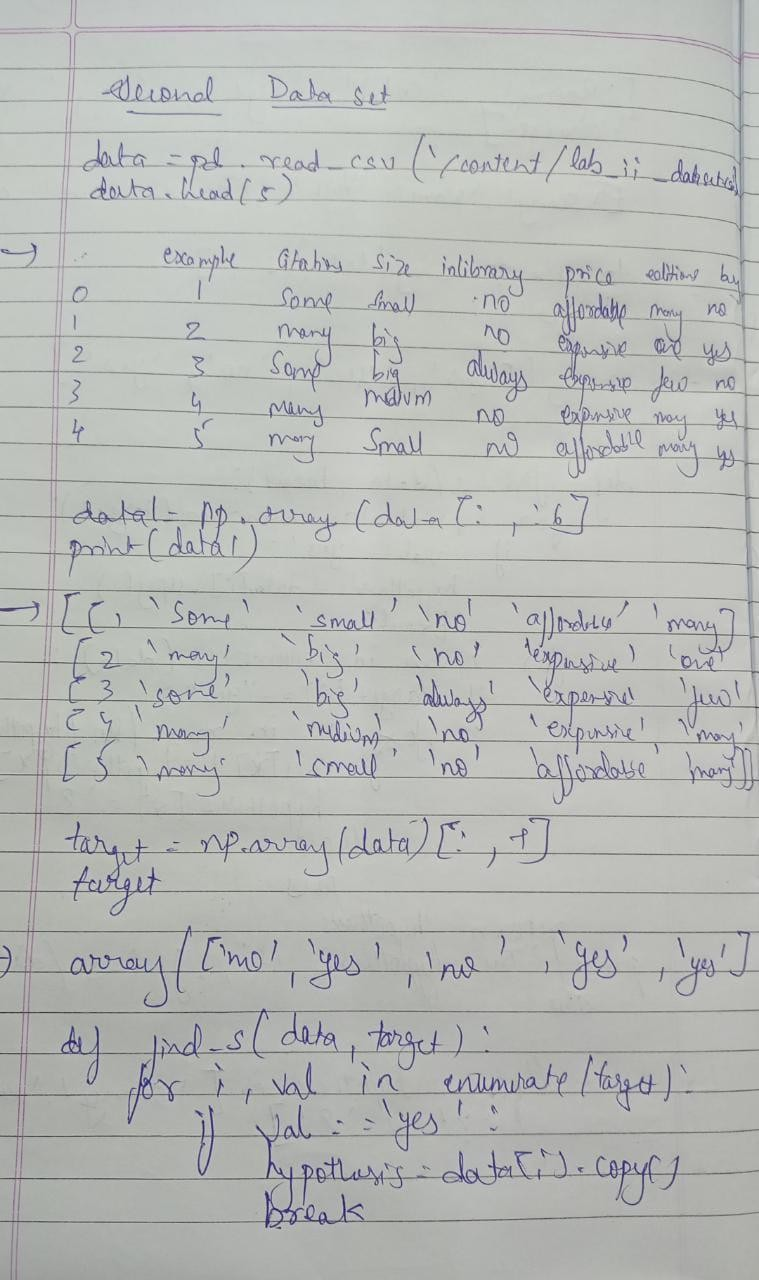 Second Data set
data = pd . read_csv ('/content/lab_ii_dataset.cs
data.head(5)
example Citations size inlibrary price editions buy
0 1 Some small no affordable many no
1 2 many big no expensive one yes
2 3 Some big always expensive few no
3 4 many medium no expensive many yes
4 5 many Small no affordable many yes
data1 = np.array (data [: , :6]
print(data1)
[[1 'Some' 'small' 'no' 'affordable' 'many]
[2 'many' 'big' 'no' 'expensive' 'one'
[3 'some' 'big' 'always' 'expensive' 'few'
[4 'many' 'medium' 'no' 'expensive' 'many'
[5 'many' 'small' 'no' 'affordable' 'many']]
target = np.array(data) [: ,
target
array(['no', 'yes', 'no', 'yes', 'yes']
def find_s(data, target):
for i, val in enumerate(target):
if val == 'yes':
hypothesis = data[i].copy()
break